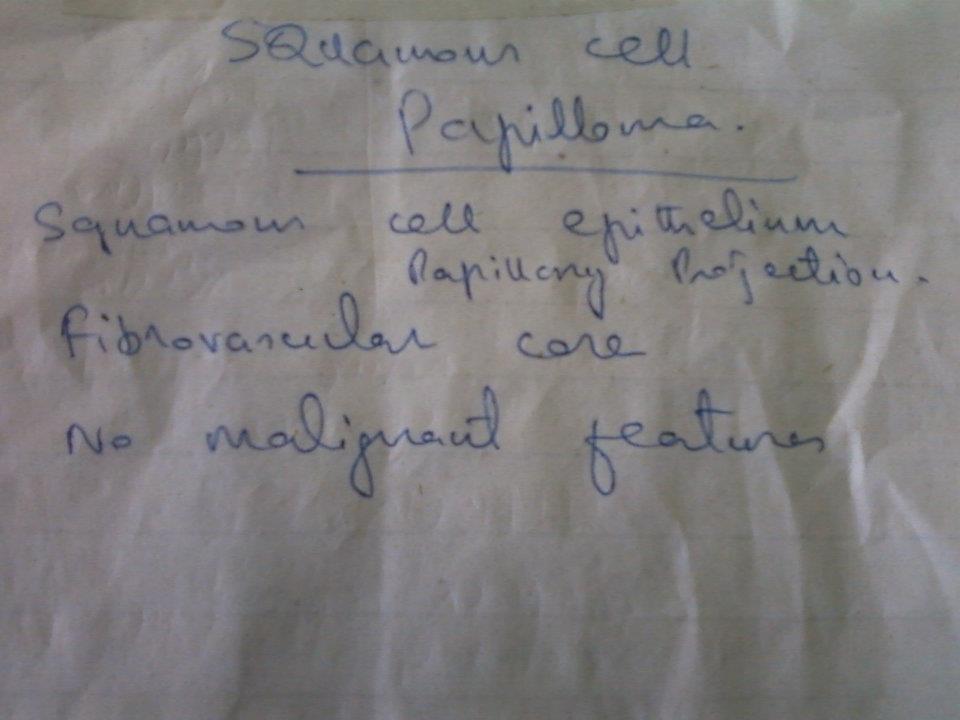 SQuamous cell
Papilloma.
Squamous cell epithelium
Papillary Projection.
Fibrovascular core
No malignant features